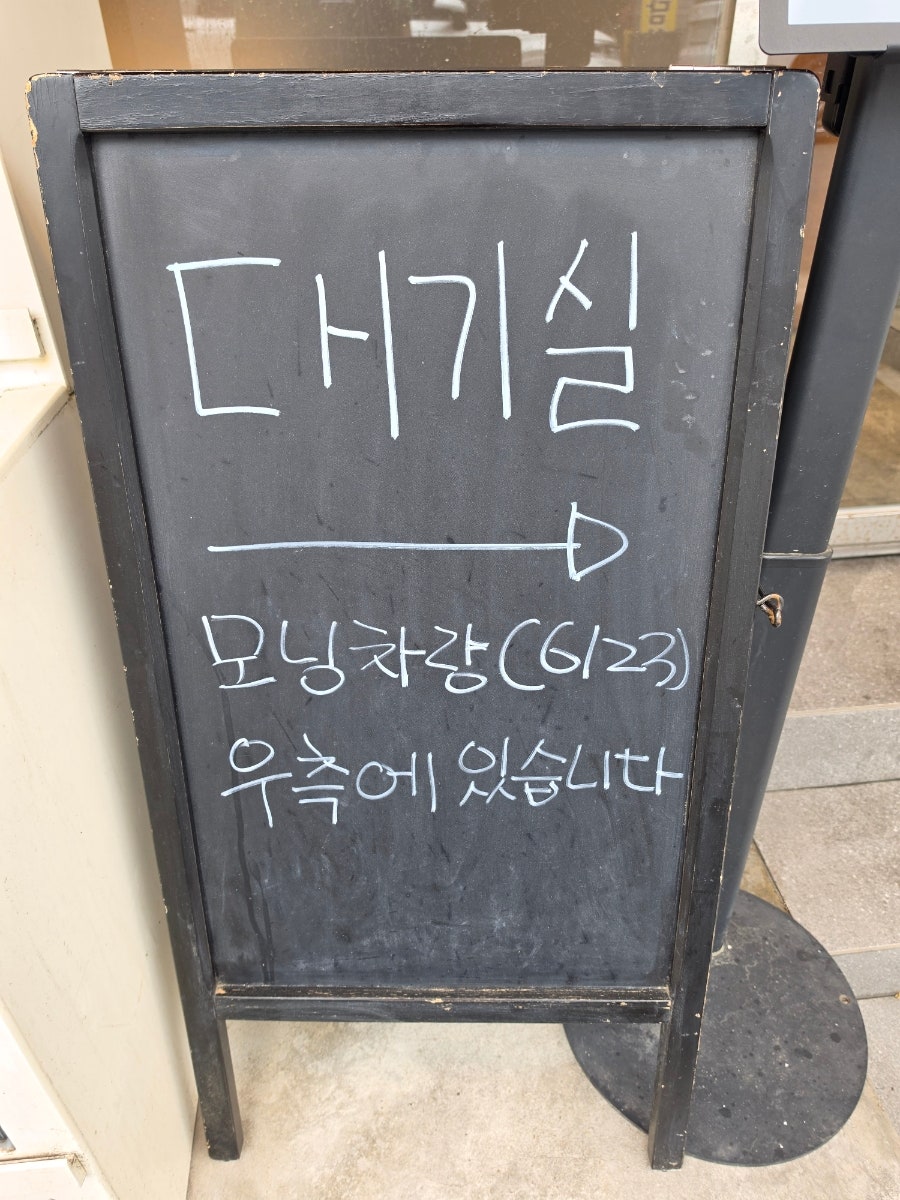 대기실
→
모닝차량(6123)
우측에 있습니다